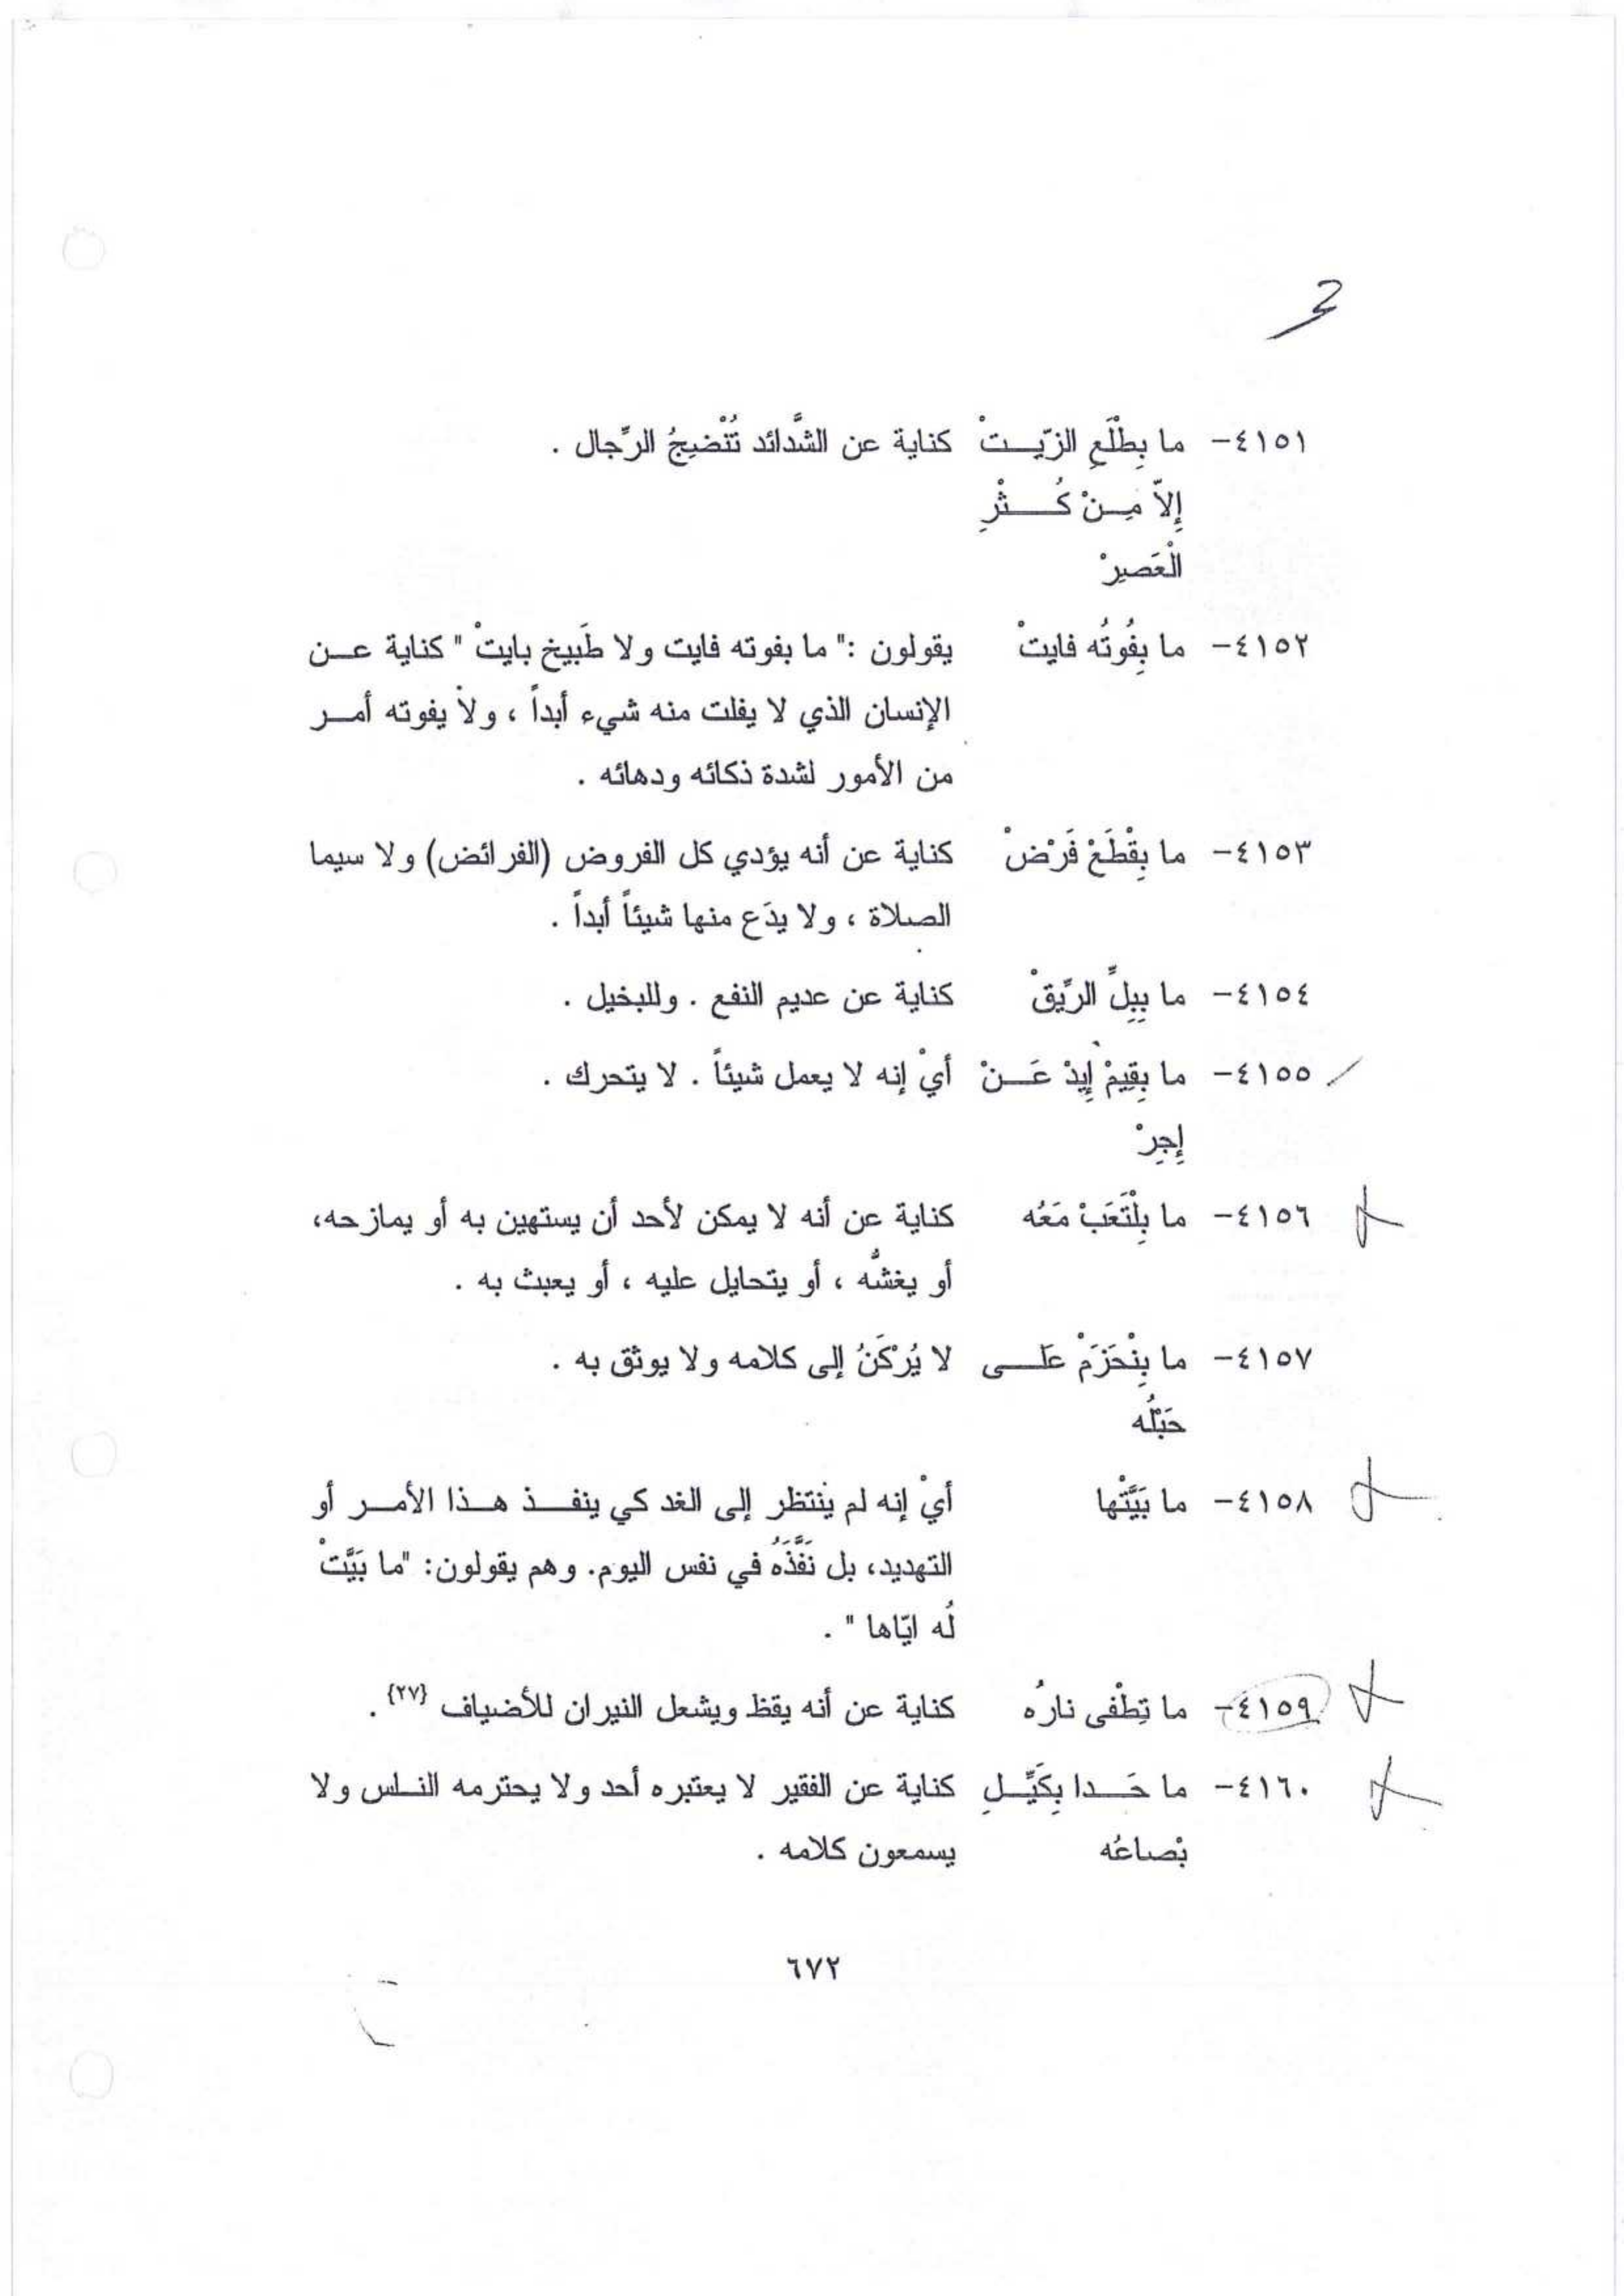 ٤١٥١- ما بِطْلَعِ الزّيــتْ كناية عن الشَّدائد تُنْضِجُ الرِّجال .
إِلاّ مِــنْ كُــثْرِ
الْعَصيِرْ
٤١٥٢- ما بِفُوتُه فايتْ يقولون :" ما بفوته فايت ولا طَبيخ بايتْ " كناية عـن
الإنسان الذي لا يفلت منه شيء أبداً ، ولا يفوته أمـر
من الأمور لشدة ذكائه ودهائه .
٤١٥٣- ما بِقْطَعْ فَرْضْ كناية عن أنه يؤدي كل الفروض (الفرائض) ولا سيما
الصلاة ، ولا يدَع منها شيئاً أبداً .
٤١٥٤- ما بِبِلِّ الرِّيقْ كناية عن عديم النفع . وللبخيل .
٤١٥٥- ما بِقِيِمْ إِيِدْ عَــنْ أيْ إنه لا يعمل شيئاً . لا يتحرك .
إِجِرْ
٤١٥٦- ما بِلْتَعَبْ مَعُه كناية عن أنه لا يمكن لأحد أن يستهين به أو يمازحه،
أو يغشُّه ، أو يتحايل عليه ، أو يعبث به .
٤١٥٧- ما بِنْحَزَمْ عَلــى لا يُرْكَنُ إلى كلامه ولا يوثق به .
حَبْلُه
٤١٥٨- ما بَيَّتْها أيْ إنه لم ينتظر إلى الغد كي ينفــذ هــذا الأمــر أو
التهديد، بل نَفَّذَهُ في نفس اليوم. وهم يقولون: "ما بَيَّتْ
لُه ايّاها " .
٤١٥٩- ما تِطْفى نارُه كناية عن أنه يقظ ويشعل النيران للأضياف {٢٧}.
٤١٦٠- ما حَــدا بِكَيِّــلِ كناية عن الفقير لا يعتبره أحد ولا يحترمه النـاس ولا
بْصاعُه يسمعون كلامه .
٦٧٢